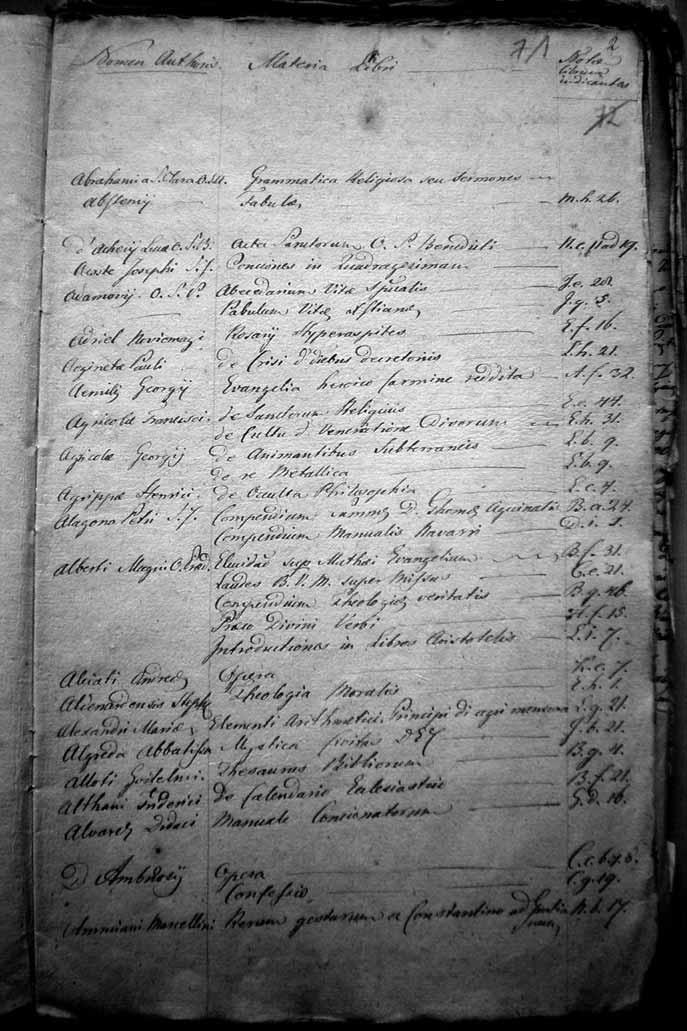 2
Nomen Authoris. Materia Libri 71 Nota
librum
indicantes
72
Abrahami a S. Clara O.S.A. Grammatica Religiosa seu sermones
Abstemij Fabulæ M.h.26.
d'Achery Lucæ O.S.B. Acta Sanctorum O. S. Benedicti
Acoste Josephi S.J. Conciones in Quadragesimam
Adamovij O.S.P. Abecedarium Vitæ Spualis J.e.28.
Pabulum Vitæ J.g.5.
Adriel Rosarij Hyperaspites E.f.16.
Aeginetæ Pauli de Crisi & diebus decretoriis L.h.21.
Aemilij Georgij Evangelia heroico carmine reddita A.f.32.
Agricolæ Francisci de Sanctorum Reliquiis E.e.44.
de Cultu & Veneratione Divorum E.h.31.
Agricolæ Georgij de Animantibus Subterraneis L.b.9.
de re Metallica L.b.9.
Agrippæ Henrici de Occulta Philosophia L.c.4.
Alagona Petri S.J. Compendium Summæ D. Thomæ Aquinatis B.a.24.
Compendium Manualis Navarri D.i.1.
Alberti Magni O. Præd. Elucidatio super Mathæi Evangelium B.f.31.
Laudes B.V.M. super Missus C.e.21.
Compendium Theologicæ veritatis B.g.46.
Præco Divini Verbi H.f.15.
Introductiones in Libros Aristotelis L.i.7.
Alciati Andreæ Opera K.c.7.
Theologia Moralis E.h.1.
Alexandri Mariæ Elementi Arithmetici Principi di agri mensura i.g.21.
Algreda Abbatissa Mystica Civitas DEI J.b.21.
Alloti Guilelmi Thesaurus Bibliorum B.g.4.
Althani Friderici de Calendario Ecclesiastico B.f.21.
Alvarez Didaci Manuale Concionatorum G.d.16.
D. Ambrosij Opera C.c.6.7.8.
Confessio C.g.19.
Ammiani Marcellini Rerum gestarum a Constantino ad N.b.17.